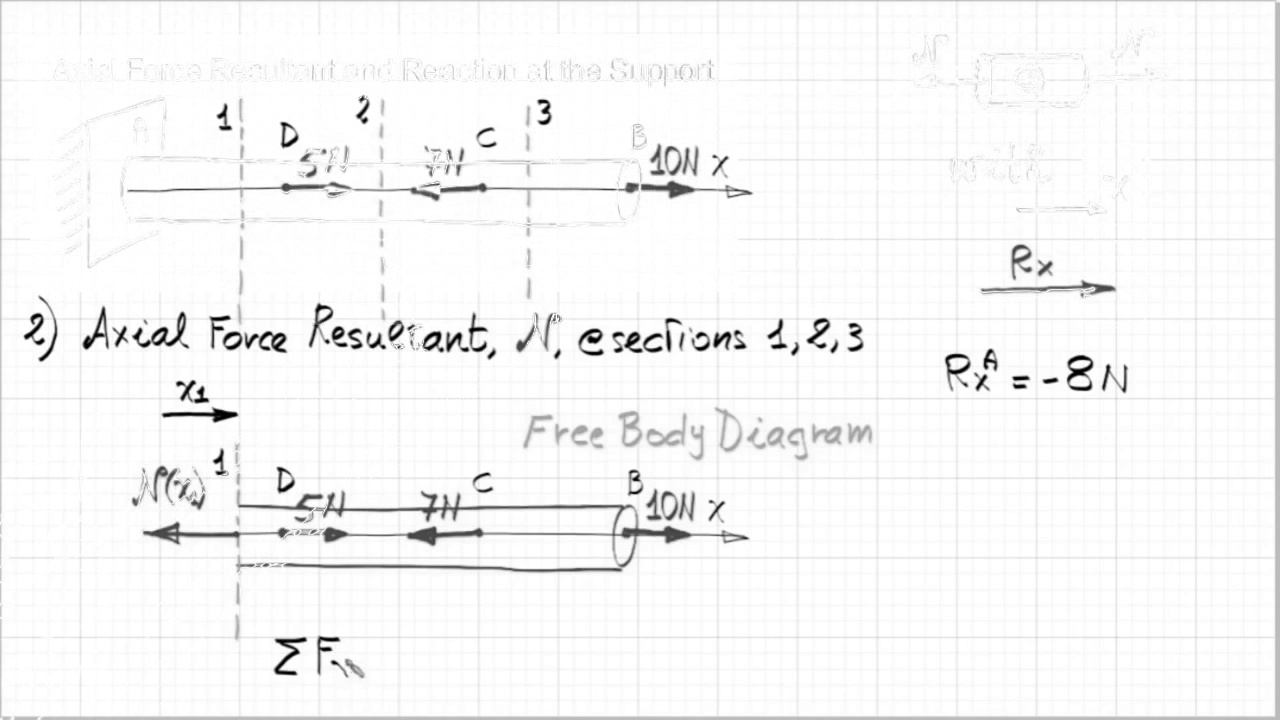 Axial Force Resultant and Reaction at the Support
N N
A 1 D 5N 2 7N C 3 B 10N x
with
x
Rx
2) Axial Force Resultant, N, @ sections 1, 2, 3
RxA = -8N
x1
Free Body Diagram
N(x1) 1 D 5N 7N C B 10N x
ΣF